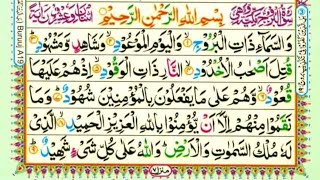 بِسْمِ اللهِ الرَّحْمٰنِ الرَّحِيْمِ
وَالسَّمَآءِ ذَاتِ الْبُرُوْجِ ۙ وَالْيَوْمِ الْمَوْعُوْدِ ۙ وَشَاهِدٍ وَّمَشْهُوْدٍ ؕ
قُتِلَ اَصْحٰبُ الْاُخْدُوْدِ ۙ النَّارِ ذَاتِ الْوَقُوْدِ ۙ اِذْ هُمْ عَلَيْهَا
قُعُوْدٌ ۙ وَّهُمْ عَلٰى مَا يَفْعَلُوْنَ بِالْمُؤْمِنِيْنَ شُهُوْدٌ ؕ وَمَا
نَقَمُوْا مِنْهُمْ اِلَّاۤ اَنْ يُّؤْمِنُوْا بِاللهِ الْعَزِيْزِ الْحَمِيْدِ ۙ الَّذِيْ
لَهٗ مُلْكُ السَّمٰوٰتِ وَالْاَرْضِ ؕ وَاللهُ عَلٰى كُلِّ شَيْءٍ شَهِيْدٌ ؕ
Buruuj A 19